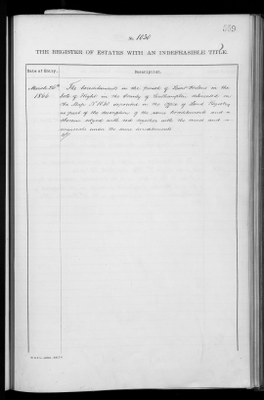 539
No. 1030
THE REGISTER OF ESTATES WITH AN INDEFEASIBLE TITLE.
Date of Entry.
Description.
March 24th
1866
The hereditaments in the parish of Saint Helens in the
Isle of Wight in the County of Southampton delineated on
the Map No. 1030 deposited in the Office of Land Registry
as part of the description of the same hereditaments and
thereon edged with red together with the mines and
minerals under the same hereditaments